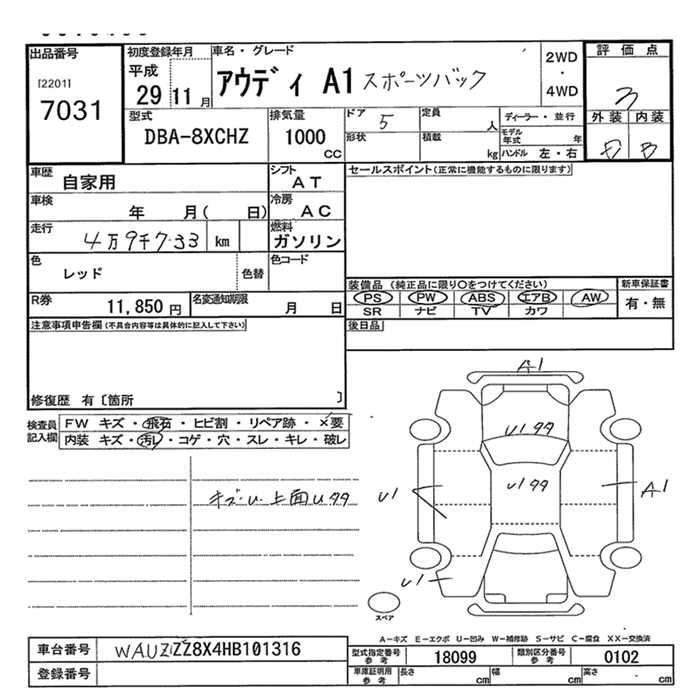 出品番号
[2201]
7031
初度登録年月
平成
29 11 月
車名・グレード
アウディ A1 スポーツバック
2WD
・
4WD
評価点
3
外装 内装
D B
型式
DBA-8XCHZ
排気量
1000
CC
ドア 5
形状
定員 人
積載 kg
ディーラー・並行
モデル年式 年
ハンドル 左・右
車歴
自家用
シフト
AT
車検
年 月( 日)
冷房
AC
走行
4万9千733 km
燃料
ガソリン
色
レッド
色替
色コード
R券
11,850 円
名変通知期限
月 日
セールスポイント(正常に機能するものに限ります)
装備品 (純正品に限り○をつけてください)
PS PW ABS エアB AW
SR ナビ TV カワ
新車保証書
有・無
後日品
注意事項申告欄(不具合内容等は具体的に記入して下さい)
修復歴 有〔箇所 〕
検査員記入欄
FW キズ・飛石・ヒビ割・リペア跡・×要
内装 キズ・汚レ・コゲ・穴・スレ・キレ・破レ
キズ・U. 上面U99
A1
U199
U199
U1
A1
U1
スペア
A-キズ E-エクボ U-凹み W-補修跡 S-サビ C-腐食 XX-交換済
車台番号
WAUZZZ8X4HB101316
登録番号
型式指定番号
参考
18099
類別区分番号
参考
0102
車庫証明用
参考
長さ cm
幅 cm
高さ cm